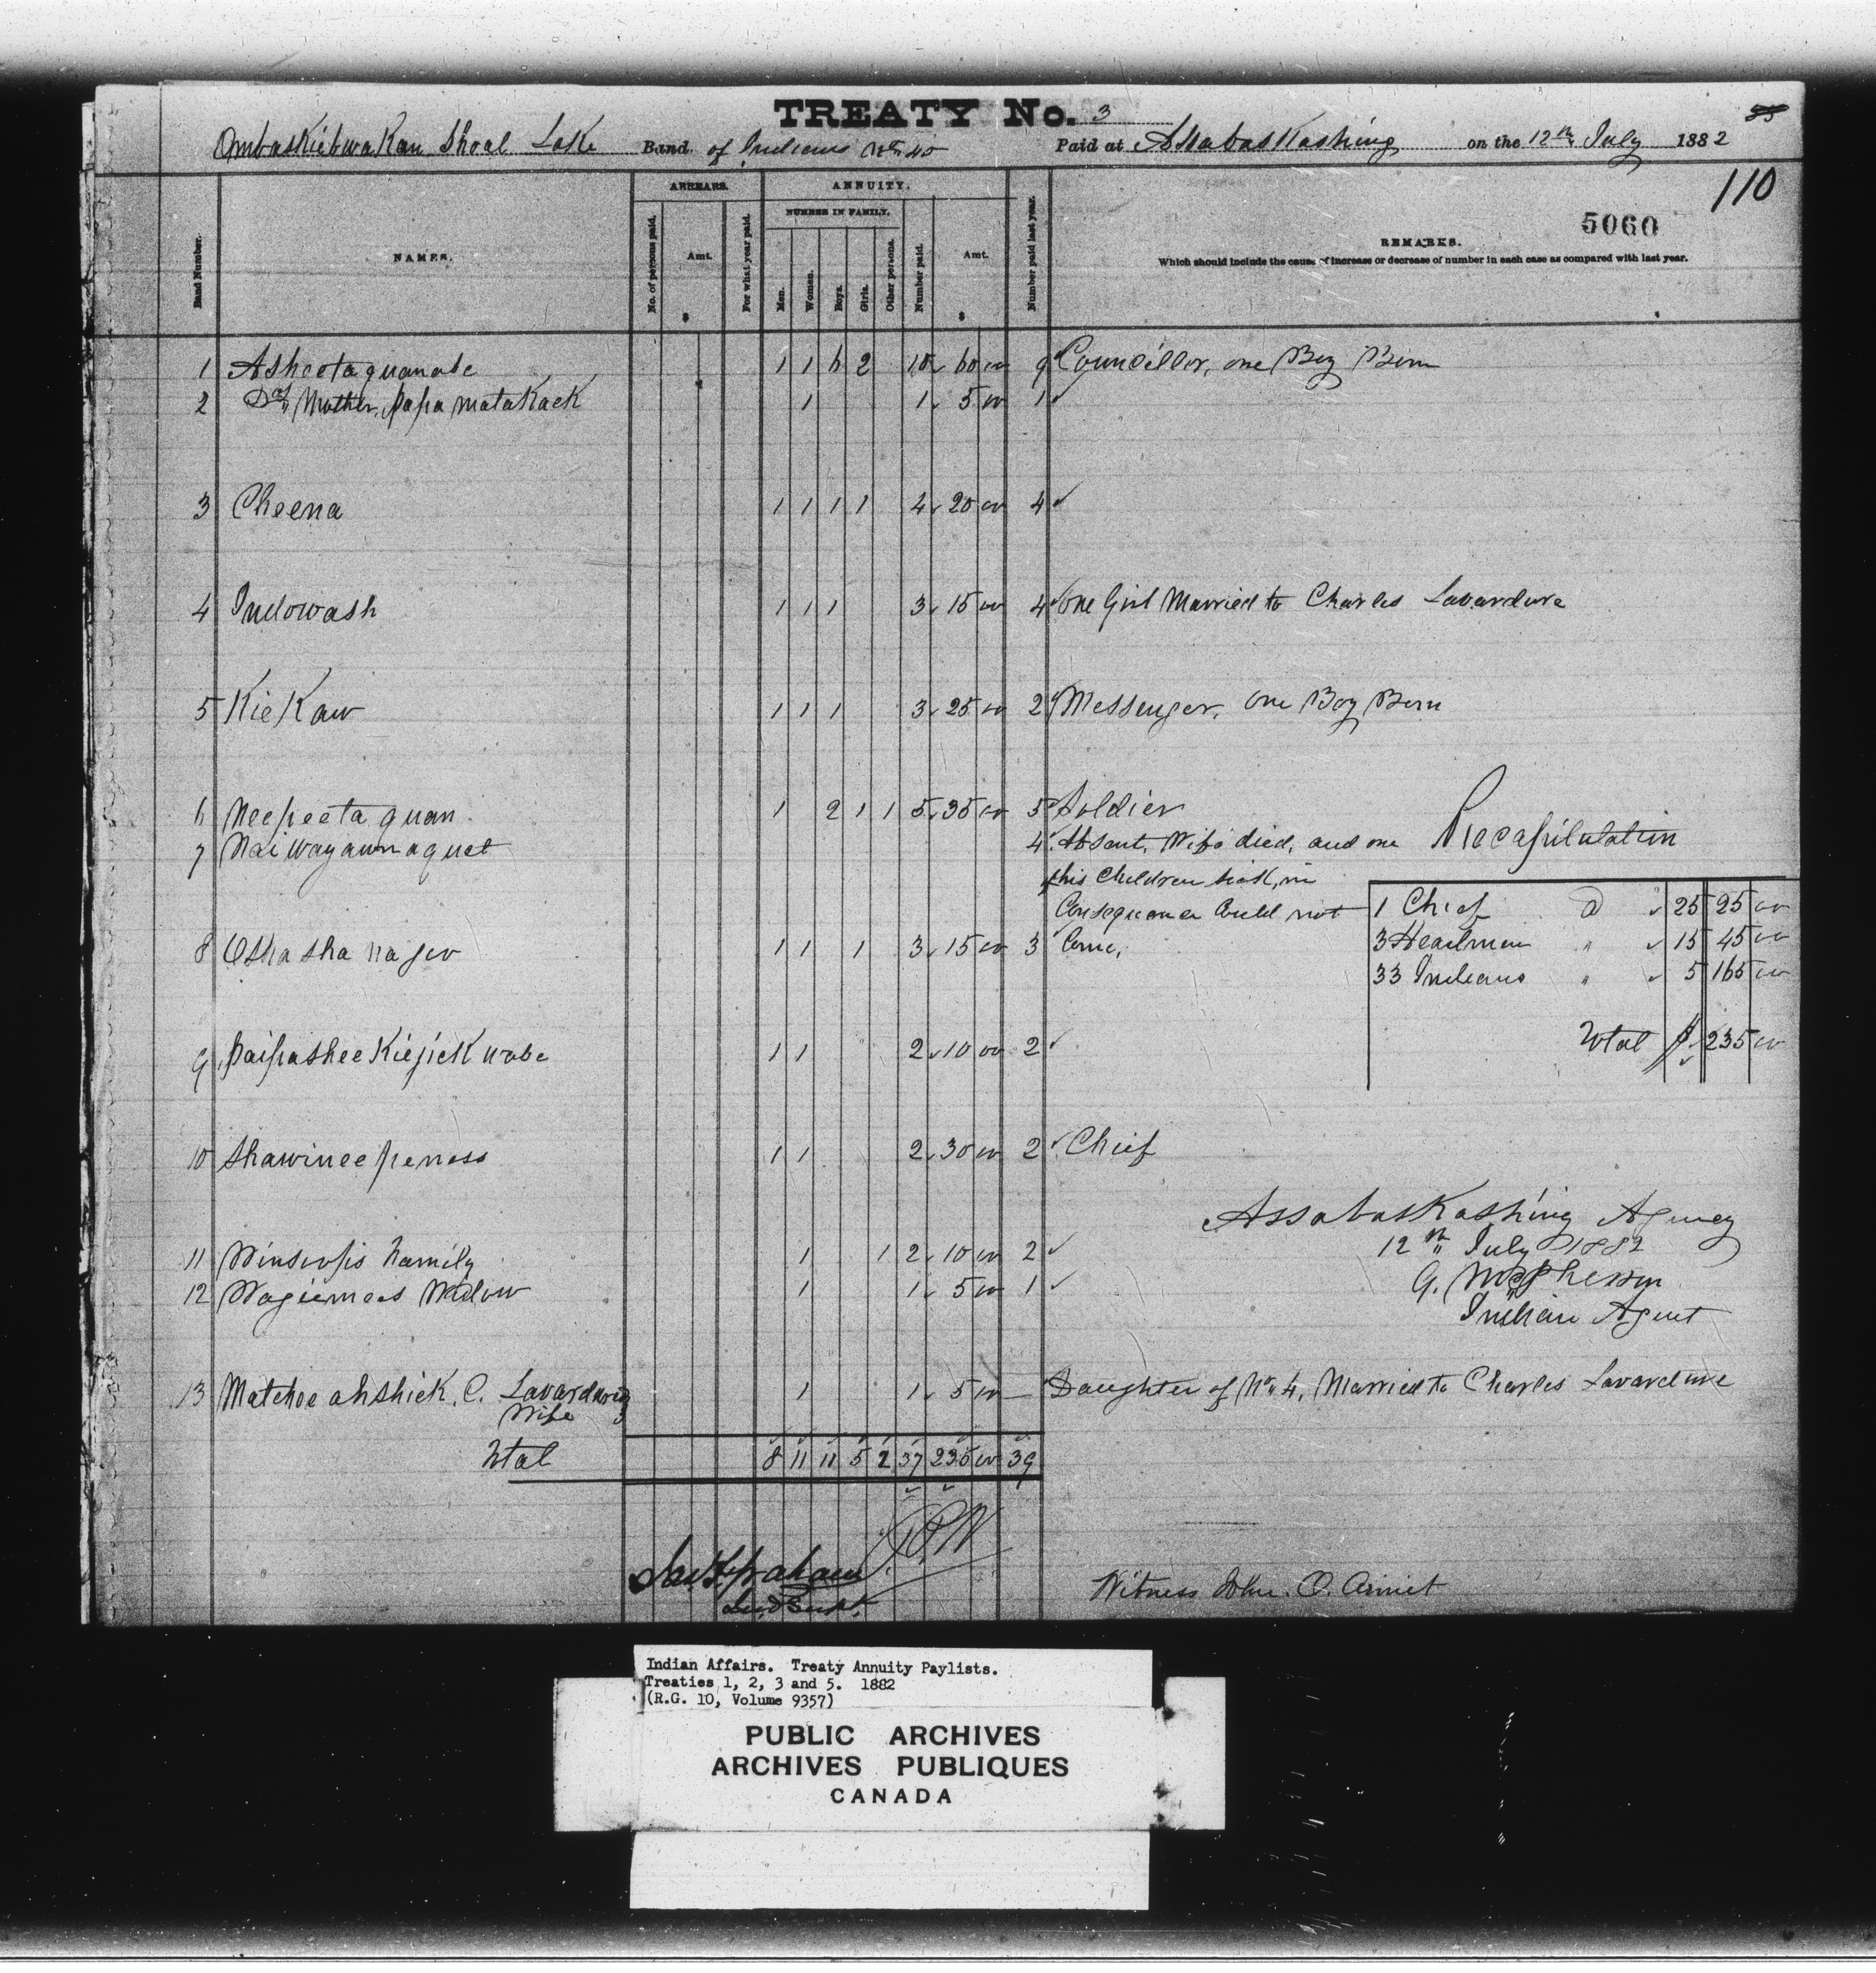 TREATY No. 3
Shoal Lake Band of Indians No. 40 Paid at Assabaskashing on the 12th July 1882
110
5060
Band Number.
NAMES.
ARREARS.
No. of persons paid.
Amt.
$
For what year paid.
ANNUITY.
NUMBER IN FAMILY.
Men.
Women.
Boys.
Girls.
Other persons.
Number paid.
Amt.
$
Number paid last year.
REMARKS.
Which should include the cause of increase or decrease of number in each case as compared with last year.
1 Asheetaquanabe 1 1 6 2 10 60 00 9 Councillor, one Boy Born
2 Do Mother, papamatakack 1 1 5 00 1
3 Cheena 1 1 1 1 4 20 00 4
4 Indowash 1 1 1 3 15 00 4 one Girl Married to Charles Lavardure
5 KieKaw 1 1 1 3 25 00 2 Messenger, one Boy Born
6 Neepeetaquan 1 2 1 1 5 35 00 5 Soldier
7 Naiwayaumaquet 4 Absent, Wife died, and one
of his Children sick, in
Consequence Could not
Come,
8 Oshashanageo 1 1 1 3 15 00 3
9 PaipasheeKiejickwabe 1 1 2 10 00 2
10 Shawineepeness 1 1 2 30 00 2 Chief
11 Winsiopis Family 1 1 2 10 00 2
12 Wagiemaas Widow 1 1 5 00 1
13 Matchoe ahshick, C. Lavardure's
Wife 1 1 5 00 — Daughter of No. 4, Married to Charles Lavardure
Total 8 11 11 5 2 37 235 00 39
Recapitulation
1 Chief @ 25 25 00
3 Headmen " 15 45 00
33 Indians " 5 165 00
Total $ 235 00
Assabaskashing Agency
12th July 1882
G. McPherson
Indian Agent
Jas. F. Graham
Ind Supt.
Witness John. O.
Indian Affairs. Treaty Annuity Paylists.
Treaties 1, 2, 3 and 5. 1882
(R.G. 10, Volume 9357)
PUBLIC ARCHIVES
ARCHIVES PUBLIQUES
CANADA